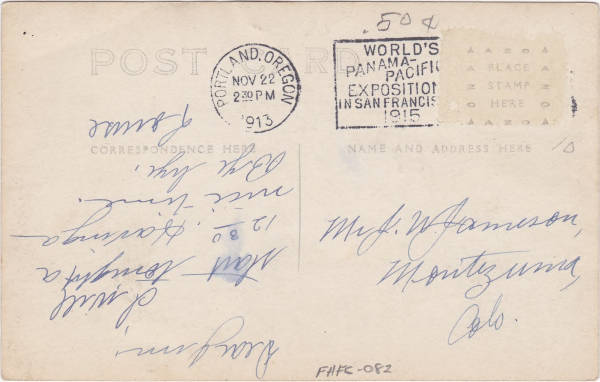 .50¢
POST CARD
PORTLAND, OREGON
NOV 22
2 30 PM
1913
WORLD'S
PANAMA-
PACIFIC
EXPOSITION
IN SAN FRANCIS
1915
AZO
PLACE
STAMP
HERE
CORRESPONDENCE HERE
NAME AND ADDRESS HERE
I will
start tonight
12 30 Having a
nice time.
Bye bye.
Louise
Montezuma,
Colo.
FHFC-082